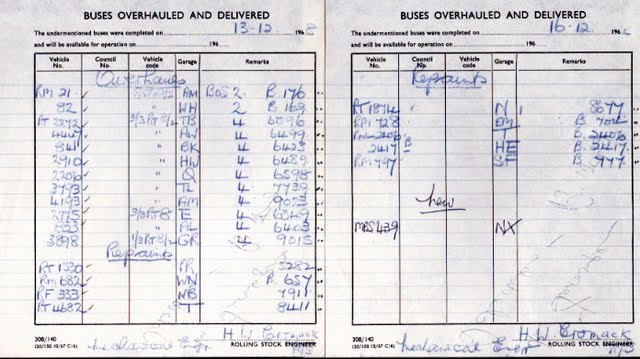 BUSES OVERHAULED AND DELIVERED
The undermentioned buses were completed on 13-12. 196 8
and will be available for operation on 196
Vehicle No. Council No. Vehicle code Garage Remarks
Overhauls
RM 21 AM BOS 2. B. 176
82 " WH 2 B. 169
RT 2272 3/3RT8/2 TB 4 6096
4447 " AW 4 6499
841 " BK 4 6423
2910 " HW 4 6489
2206 " Q 4 6598
3793 " TL 4 7739
4193 " AM 4 9023
2775 3/3RT8 E 4
" AL 4 6403
3898 1/3RT8/2 GR 4 9015
Repaints
RT 1530 PR 5282
RM 682 WN B. 657
RF 333 WB 7911
RT 4682 T 8411
308/140
(20/150 10/67 C18)
Mechanical Engr. H.W. Cromack
ROLLING STOCK ENGINEER
BUSES OVERHAULED AND DELIVERED
The undermentioned buses were completed on 16-12. 196
and will be available for operation on 196
Vehicle No. Council No. Vehicle code Garage Remarks
Repaints
RT 1874 N 8677
RM 728 EM B.
T B. 2406
2417 B HE B. 2417
RM 797 SF B. 777
New
MBS 439 NX
308/140
(20/150 10/67 C18)
Mechanical Engr. H.W. Cromack
ROLLING STOCK ENGINEER